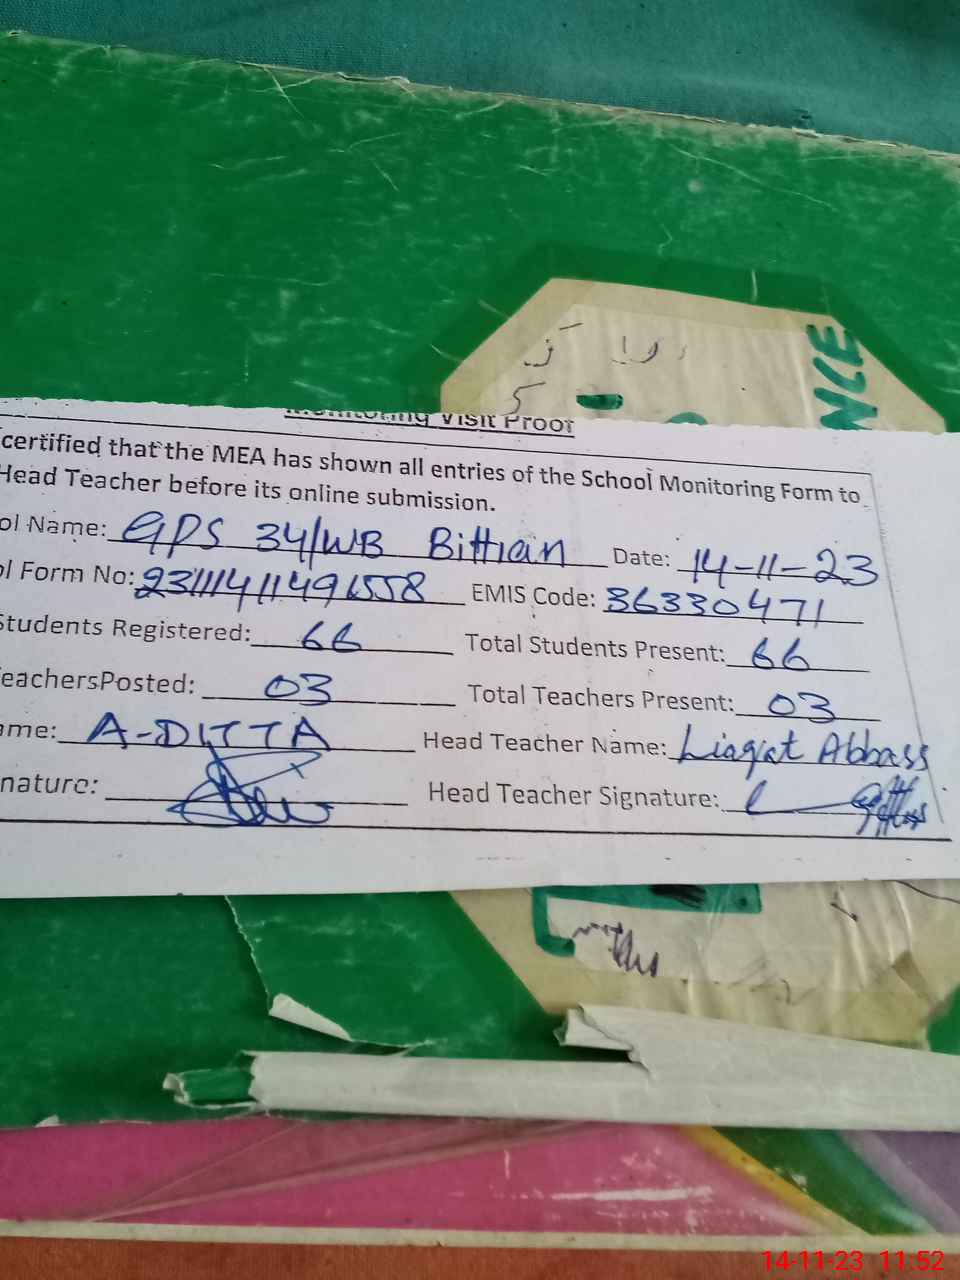 NCE
Monitoring Visit Proof
certified that the MEA has shown all entries of the School Monitoring Form to
Head Teacher before its online submission.
ol Name: GPS 34/WB Bittian Date: 14-11-23
ol Form No: EMIS Code: 36330471
Students Registered: 66 Total Students Present: 66
eachersPosted: 03 Total Teachers Present: 03
ame: A-DITTA Head Teacher Name: Liaqat Abbass
nature: Head Teacher Signature:
14-11-23 11:52